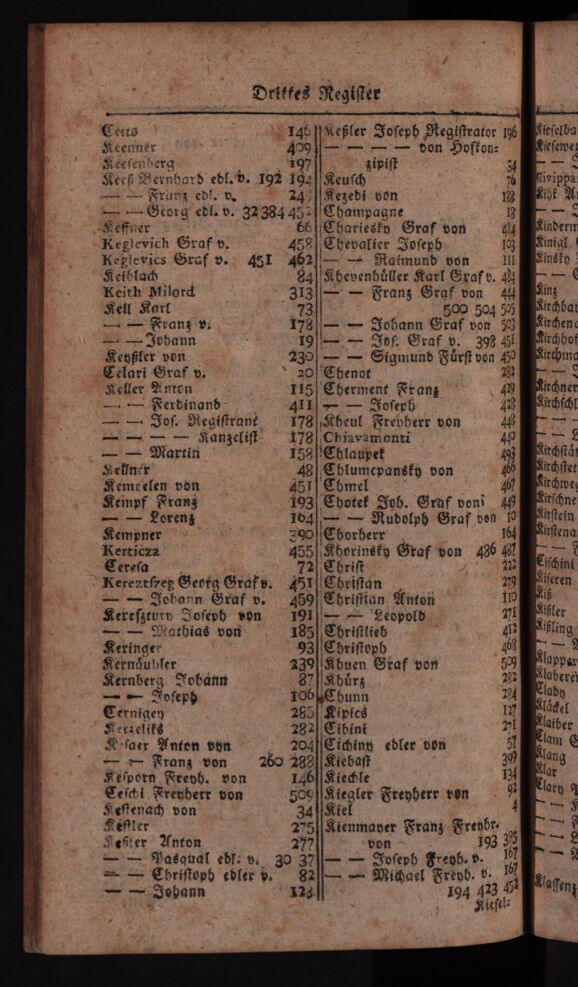 Drittes Register
Cetto 146
Keenner 409
Keesenberg 197
Keeß Bernhard edl. v. 192 194
— — Franz edl. v. 24
— — Georg edl. v. 32 384 452
Keffner 66
Keglevich Graf v. 458
Keglevics Graf v. 451 462
Keiblach 84
Keith Milord 313
Keil Karl 73
— — Franz v. 178
— — Johann 19
Keyßler von 230
Celari Graf v. 20
Keller Anton 115
— — Ferdinand 411
— — Jos. Registrant 178
— — — — Kanzelist 178
— — Martin 158
Kellner 48
Kemcelen von 451
Kempf Franz 193
— — Lorenz 104
Kempner 390
Kerticza 455
Ceresa 72
Kereztszeg Georg Graf v. 451
— — Johann Graf v. 459
Keresztury Joseph von 191
— — Mathias von 185
Keringer 93
Kernäubler 239
Kernberg Johann 87
— — Joseph 106
Cernigey 285
Kerzeliks 282
Kesaer Anton von 204
— — Franz von 260 288
Kesporn Freyh. von 146
Ceschi Freyherr von 509
Kestenach von 34
Kestler 275
Keßler Anton 277
— — Pasqual edl. v. 30 37
— — Christoph edler v. 82
— — Johann 123
Keßler Joseph Registrator 196
— — — — von Hofkon=
zipist 34
Keusch 76
Kezedi von 188
Champagne 18
Chariesky Graf von 484
Chevalier Joseph 103
— — Raimund von 111
Khevenhüller Karl Graf v. 484
— — Franz Graf von 444
500 504 505
— — Johann Graf von 503
— — Jos. Graf v. 398 451
— — Sigmund Fürst von 450
Chenot 282
Cherment Franz 429
— — Joseph 428
Kheul Freyherr von 448
Chiavamonti 440
Chlaupek 493
Chlumcpansky von 466
Chmel 467
Chotek Joh. Graf von 449
— — Rudolph Graf von 10
Chorherr 164
Khorinsky Graf von 486 487
Christ 222
Christan 279
Christian Anton 110
— — Leopold 271
Christlieb 412
Christoph 468
Khuen Graf von 509
Khürz 282
Chunn 284
Kipics 127
Cibini 271
Cichiny edler von 57
Kiebast 399
Kiechle 134
Kiegler Freyherr von 92
Kiel 4
Kienmayer Franz Freyhr.
von 193 385
— — Joseph Freyh. v. 167
— — Michael Freyh. v. 167
194 423 452
Kiesel=